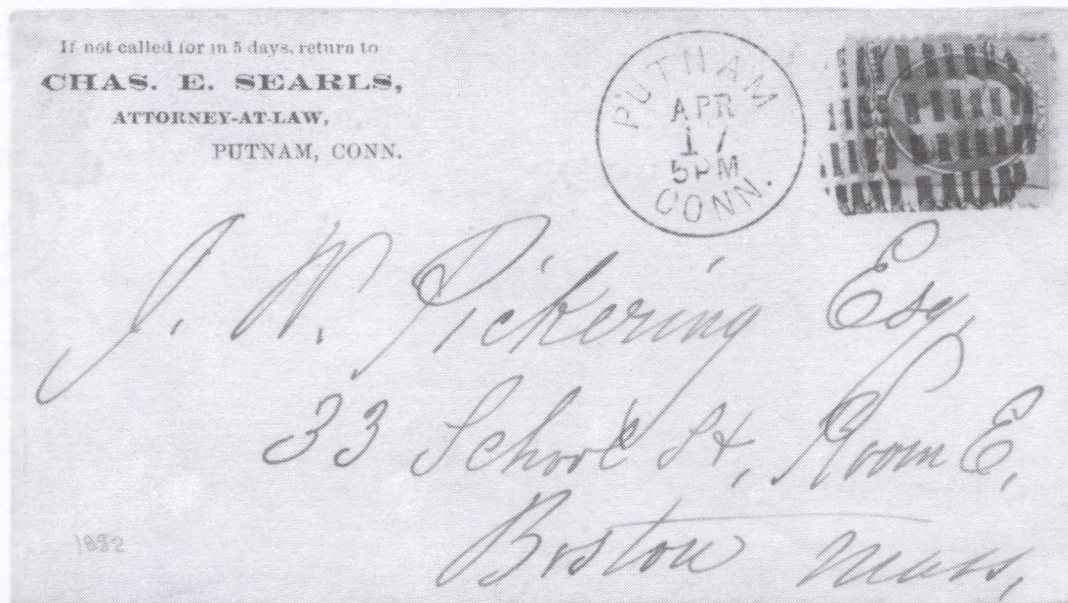 If not called for in 5 days, return to
CHAS. E. SEARLS,
ATTORNEY-AT-LAW,
PUTNAM, CONN.
PUTNAM
APR
17
5PM
CONN.
J. W. Pickering Esq,
33 School St, Room E,
Boston Mass,
1882